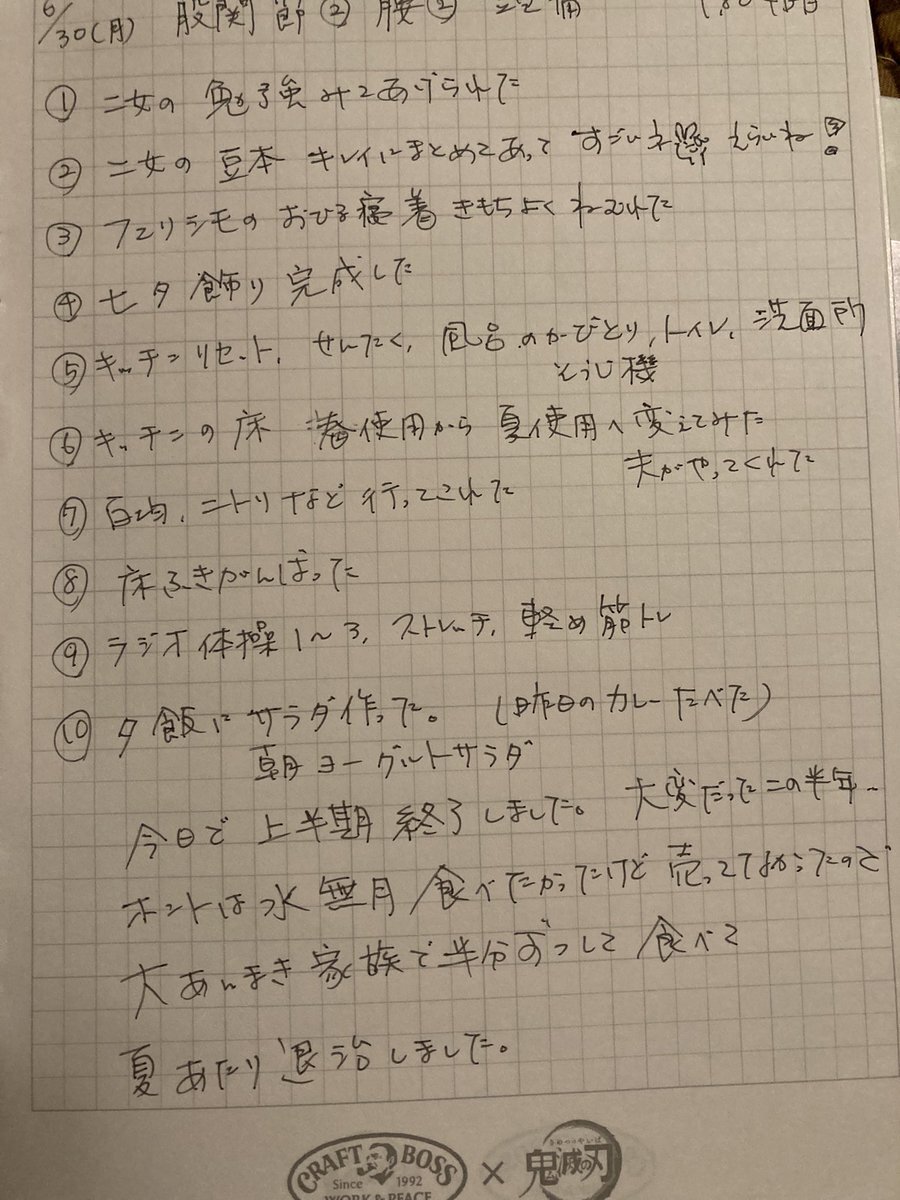 6/30(月) 股関節② 腰②
① 二女の勉強みてあげられた
② 二女の豆本 キレイにまとめてあって すごいね えらいね!
③ フェリシモのおひる寝着 きもちよくねむれた
④ 七夕飾り完成した
⑤ キッチンリセット、せんたく、風呂のカビとり、トイレ、洗面所
そうじ機
⑥ キッチンの床 春使用から夏使用へ変えてみた
夫がやってくれた
⑦ 百均、ニトリなど行ってこれた
⑧ 床ふきがんばった
⑨ ラジオ体操1〜3、ストレッチ、軽め筋トレ
⑩ 夕飯にサラダ作った。(昨日のカレーたべた)
朝ヨーグルトサラダ
今日で上半期終了しました。大変だったこの半年〜
ホントは水無月食べたかったけど売ってなかったので
大あんまき家族で半分ずつして食べて
夏あたり退治しました。
CRAFT BOSS × 鬼滅の刃
きめつのやいば
Since 1992
WORK & PEACE